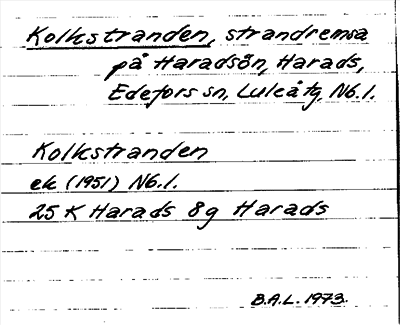 Kolkstranden, strandremsa
på Haradsön, Harads,
Edefors sn, Luleå tg, Nb.l.
Kolkstranden
ek (1951) Nb.l.
25 K Harads 8g Harads
B.A.L. 1973.